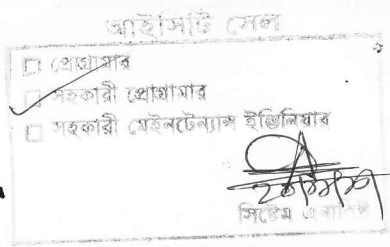 আইসিটি সেল
প্রোগ্রামার
সহকারী প্রোগ্রামার
সহকারী মেইনটেন্যান্স ইঞ্জিনিয়ার
সিস্টেম